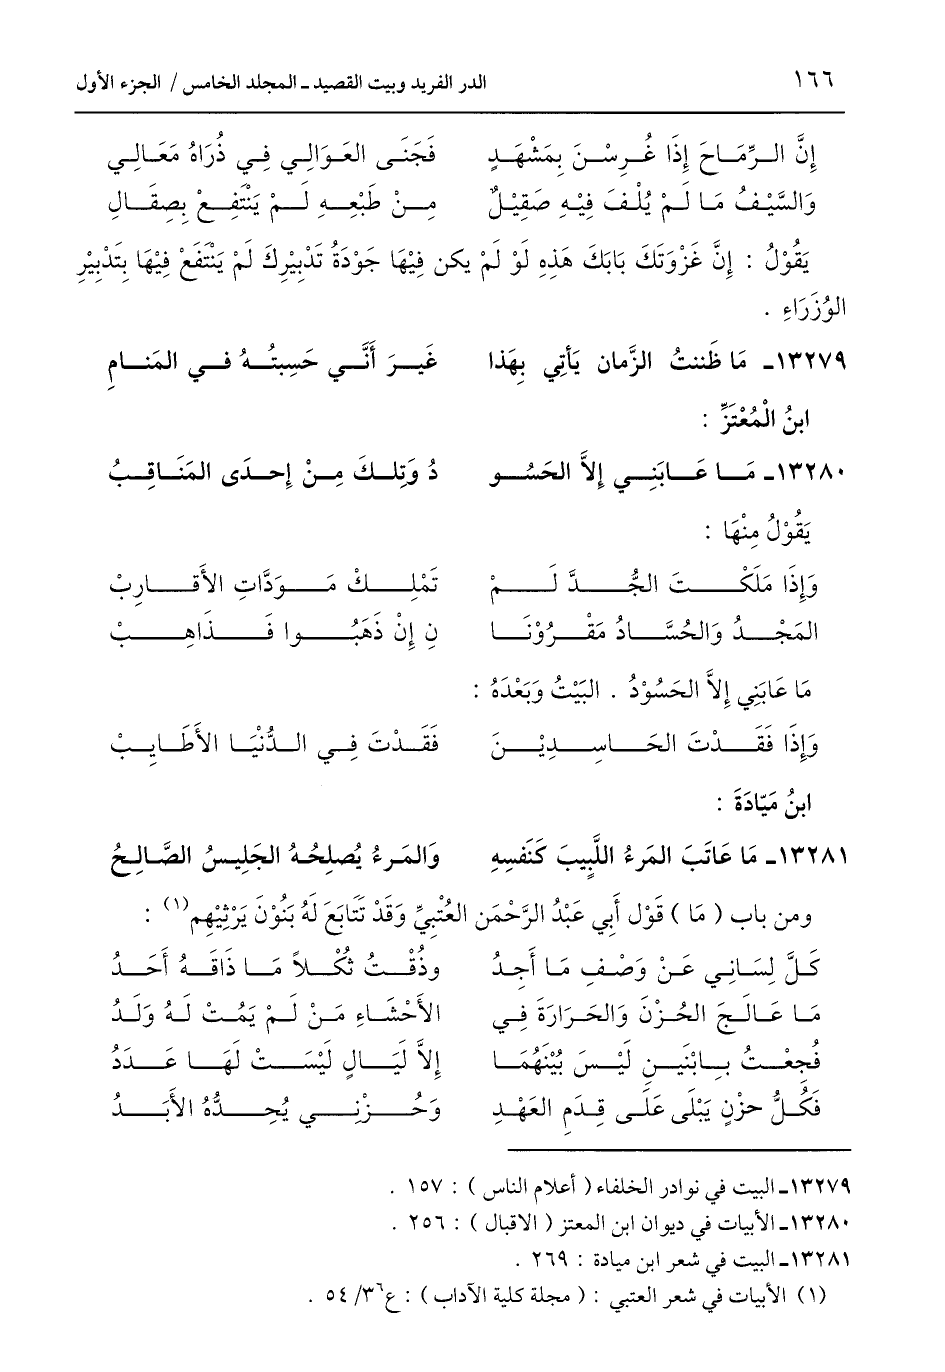 ١٦٦ الدر الفريد وبيت القصيد ـ المجلد الخامس / الجزء الأول
إِنَّ الرِّمَاحَ إِذَا غُرِسْنَ بِمَشْهَدٍ فَجَنَى العَوَالِي فِي ذُرَاهُ مَعَالِي
وَالسَّيْفُ مَا لَمْ يُلْفَ فِيْهِ صَقِيْلٌ مِنْ طَبْعِهِ لَمْ يَنْتَفِعْ بِصِقَالِ
يَقُوْلُ : إِنَّ غَزْوَتَكَ بَابَكَ هَذِهِ لَوْ لَمْ يكن فِيْهَا جَوْدَةُ تَدْبِيْرِكَ لَمْ يَنْتَفعْ فِيْهَا بِتَدْبِيْرِ
الوُزَرَاءِ .
١٣٢٧٩ـ مَا ظَننتُ الزَّمان يَأتِي بِهَذا غَيرَ أَنَّي حَسِبتُهُ في المَنامِ
ابنُ الْمُعْتَزِّ :
١٣٢٨٠ـ مَا عَابَنِي إِلاَّ الحَسُو دُ وَتِلكَ مِنْ إِحدَى المَنَاقِبُ
يَقُوْلُ مِنْهَا :
وَإِذَا مَلَكْتَ الجُدَّ لَمْ تَمْلِكْ مَوَدَّاتِ الأَقَارِبْ
المَجْدُ وَالحُسَّادُ مَقْرُوْنَا نِ إِنْ ذَهَبُوا فَذَاهِبْ
مَا عَابَنِي إِلاَّ الحَسُوْدُ . البَيْتُ وَبَعْدَهُ :
وَإِذَا فَقَدْتَ الحَاسِدِيْنَ فَقَدْتَ فِي الدُّنْيَا الأَطَايِبْ
ابنُ مَيّادَةَ :
١٣٢٨١ـ مَا عَاتَبَ المَرءُ اللَّبِيبَ كَنَفسِهِ وَالمَرءُ يُصلِحُهُ الجَلِيسُ الصَّالِحُ
ومن باب ( مَا ) قَوْل أَبِي عَبْدُ الرَّحْمَن العُتْبِيِّ وَقَدْ تَتَابَعَ لَهُ بَنُوْنَ يَرْثِيْهِم(١) :
كَلَّ لِسَانِي عَنْ وَصْفِ مَا أَجِدُ وذُقْتُ ثُكْلاً مَا ذَاقَهُ أَحَدُ
مَا عَالَجَ الحُزْنَ وَالحَرَارَةَ فِي الأَحْشَاءِ مَنْ لَمْ يَمُتْ لَهُ وَلَدُ
فُجِعْتُ بِابْنَيِن لَيْسَ بَيْنَهُمَا إِلاَّ لَيَالٍ لَيْسَتْ لَهَا عَدَدُ
فَكُلُّ حزْنٍ يَبْلَى عَلَى قِدَمِ العَهْدِ وَحُزْنِي يُجِدُّهُ الأَبَدُ
١٣٢٧٩ـ البيت في نوادر الخلفاء ( أعلام الناس ) : ١٥٧ .
١٣٢٨٠ـ الأبيات في ديوان ابن المعتز ( الاقبال ) : ٢٥٦ .
١٣٢٨١ـ البيت في شعر ابن ميادة : ٢٦٩ .
(١) الأبيات في شعر العتبي : ( مجلة كلية الآداب ) : ع٣٦/ ٥٤ .